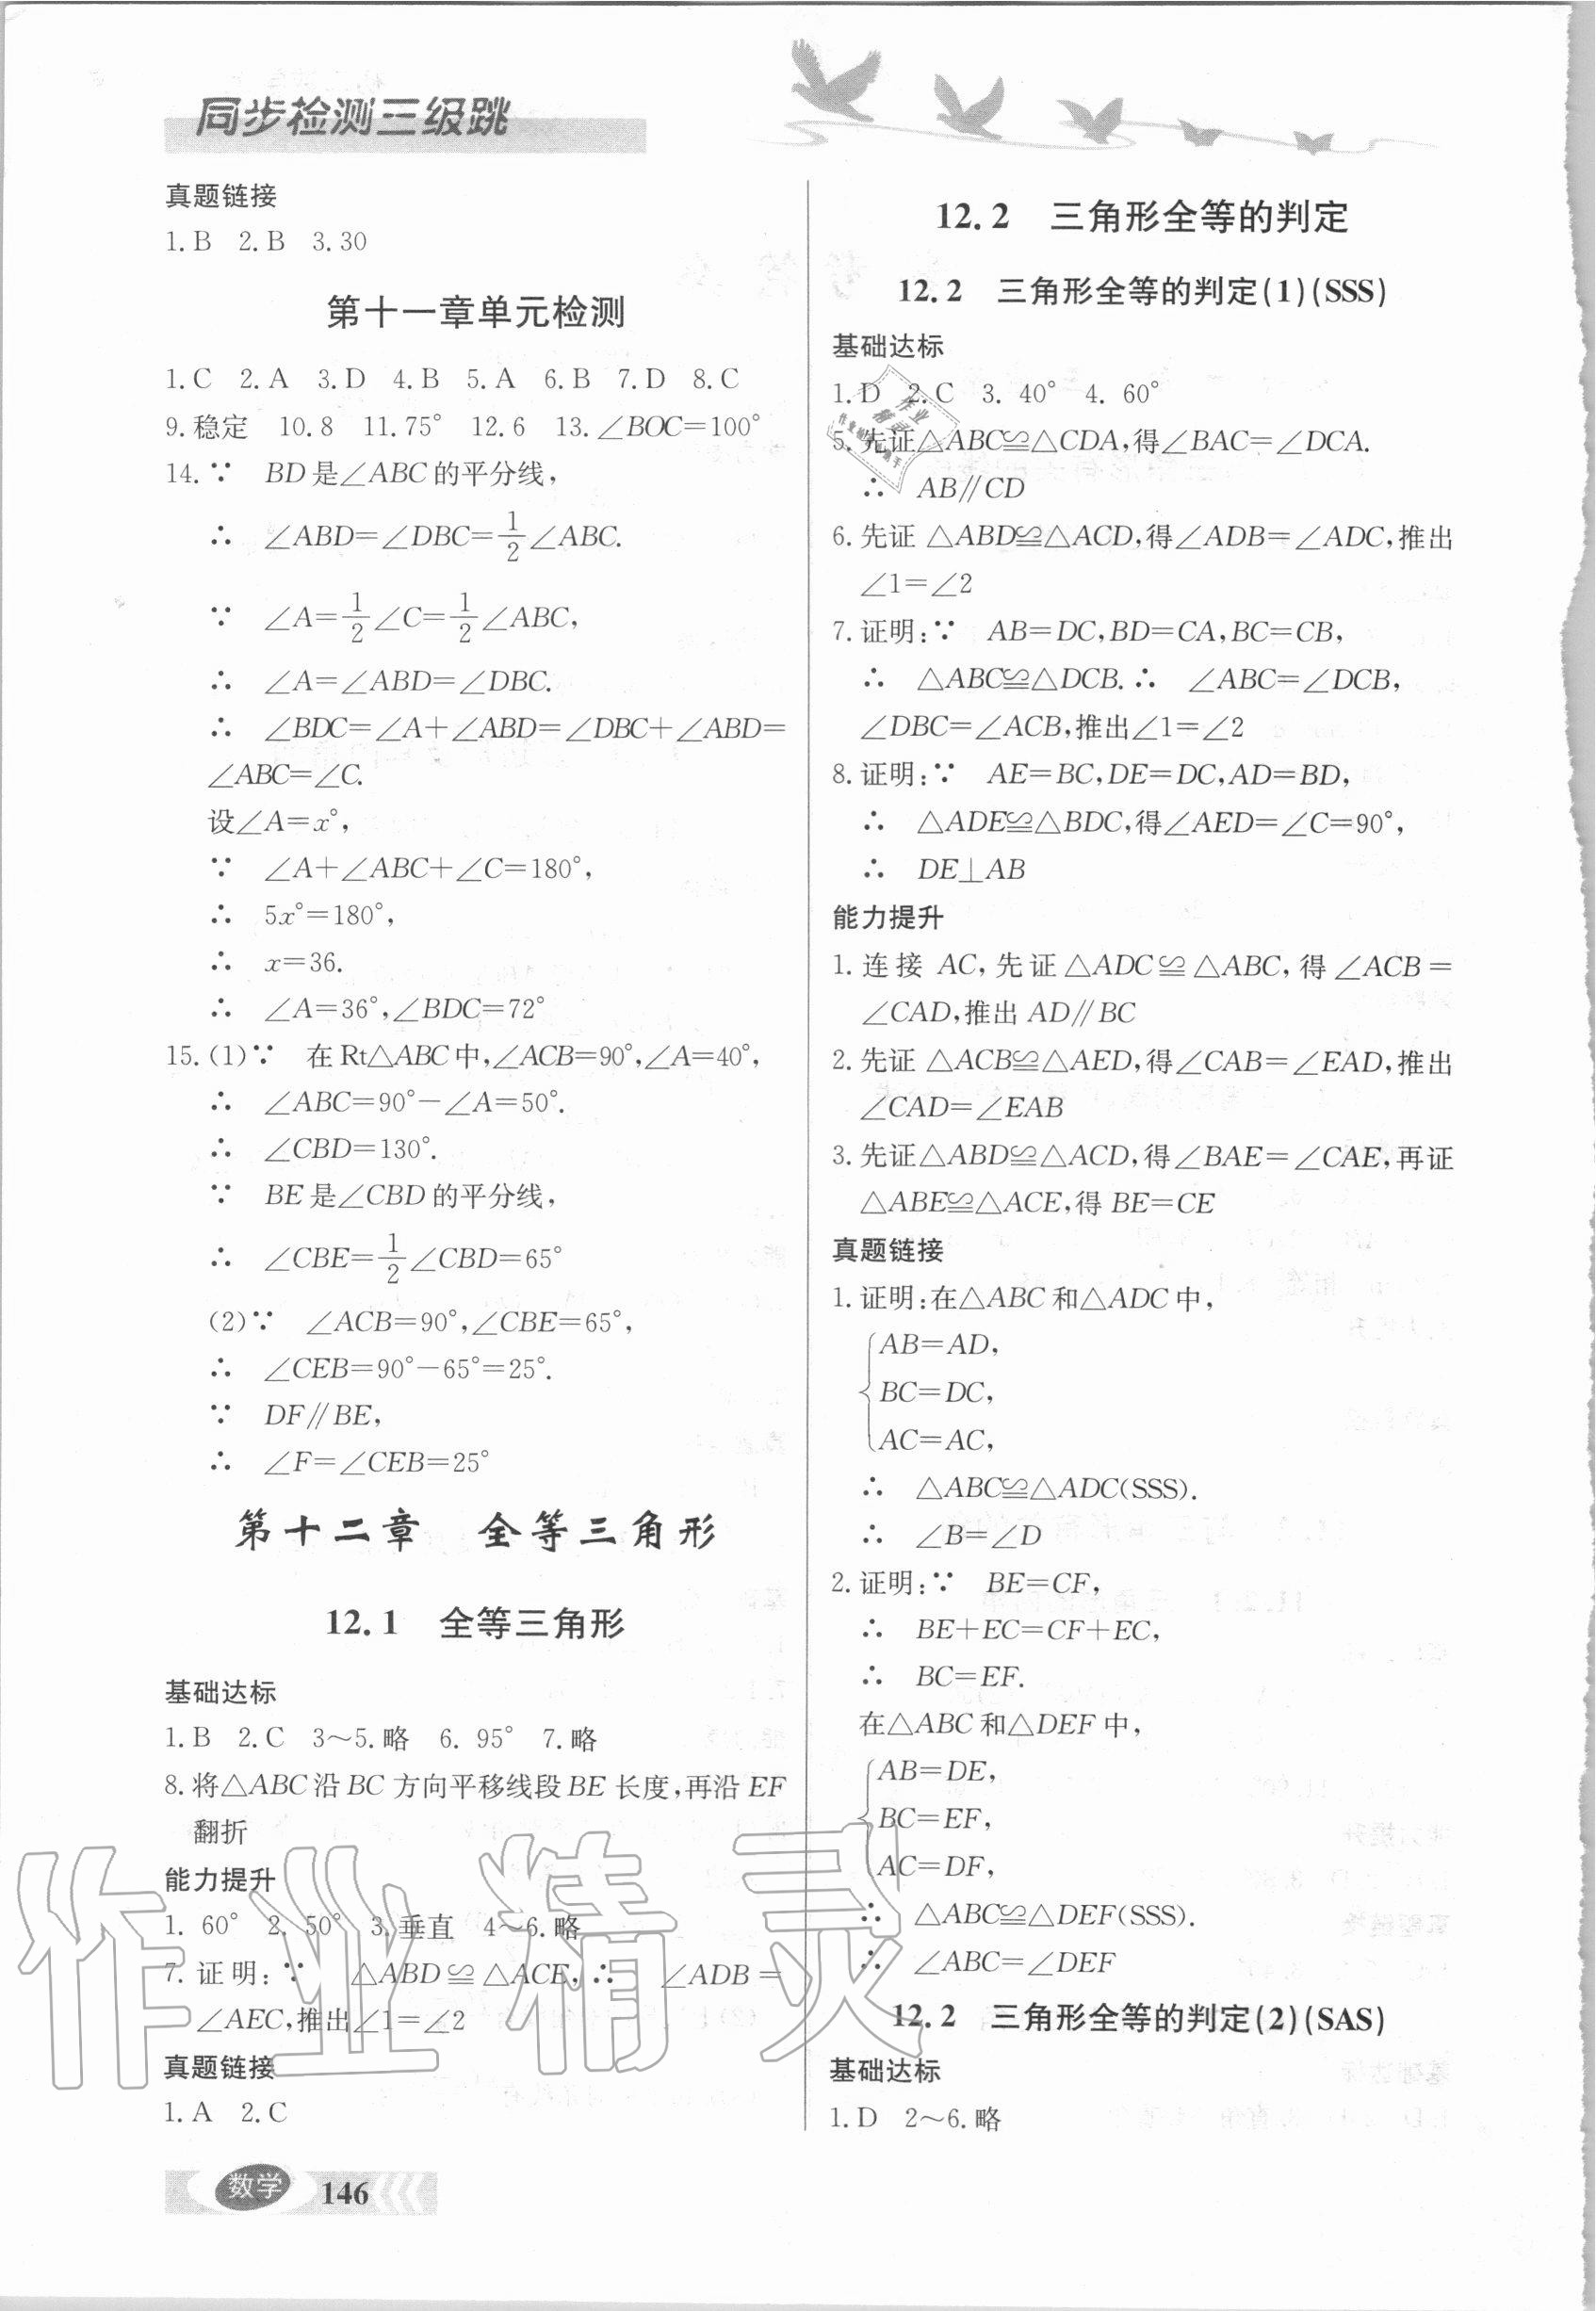 同步检测三级跳
真题链接
1.B 2.B 3.30
第十一章单元检测
1.C 2.A 3.D 4.B 5.A 6.B 7.D 8.C
9.稳定 10.8 11.75° 12.6 13.∠BOC=100°
14.∵ BD是∠ABC的平分线，
∴ ∠ABD=∠DBC=1/2∠ABC.
∵ ∠A=1/2∠C=1/2∠ABC，
∴ ∠A=∠ABD=∠DBC.
∴ ∠BDC=∠A+∠ABD=∠DBC+∠ABD=
∠ABC=∠C.
设∠A=x°，
∵ ∠A+∠ABC+∠C=180°，
∴ 5x°=180°，
∴ x=36.
∴ ∠A=36°，∠BDC=72°
15.(1)∵ 在Rt△ABC中，∠ACB=90°，∠A=40°，
∴ ∠ABC=90°−∠A=50°.
∴ ∠CBD=130°.
∵ BE是∠CBD的平分线，
∴ ∠CBE=1/2∠CBD=65°
(2)∵ ∠ACB=90°，∠CBE=65°，
∴ ∠CEB=90°−65°=25°.
∵ DF∥BE，
∴ ∠F=∠CEB=25°
第十二章 全等三角形
12.1 全等三角形
基础达标
1.B 2.C 3～5.略 6. 95° 7.略
8.将△ABC沿BC方向平移线段BE长度，再沿EF
翻折
能力提升
1. 60° 2. 50° 3.垂直 4～6.略
7. 证明：∵ △ABD≌△ACE，∴ ∠ADB=
∠AEC，推出∠1=∠2
真题链接
1.A 2.C
数学 146
12.2 三角形全等的判定
12.2 三角形全等的判定(1)(SSS)
基础达标
1.D 2.C 3. 40° 4. 60°
5.先证△ABC≌△CDA，得∠BAC=∠DCA.
∴ AB∥CD
6.先证△ABD≌△ACD，得∠ADB=∠ADC，推出
∠1=∠2
7.证明：∵ AB=DC，BD=CA，BC=CB，
∴ △ABC≌△DCB.∴ ∠ABC=∠DCB，
∠DBC=∠ACB，推出∠1=∠2
8.证明：∵ AE=BC，DE=DC，AD=BD，
∴ △ADE≌△BDC，得∠AED=∠C=90°，
∴ DE⊥AB
能力提升
1.连接AC，先证△ADC≌△ABC，得∠ACB=
∠CAD，推出AD∥BC
2.先证△ACB≌△AED，得∠CAB=∠EAD，推出
∠CAD=∠EAB
3.先证△ABD≌△ACD，得∠BAE=∠CAE，再证
△ABE≌△ACE，得BE=CE
真题链接
1.证明：在△ABC和△ADC中，
AB=AD，
BC=DC，
AC=AC，
∴ △ABC≌△ADC(SSS).
∴ ∠B=∠D
2.证明：∵ BE=CF，
∴ BE+EC=CF+EC，
∴ BC=EF.
在△ABC和△DEF中，
AB=DE，
BC=EF，
AC=DF，
∴ △ABC≌△DEF(SSS).
∴ ∠ABC=∠DEF
12.2 三角形全等的判定(2)(SAS)
基础达标
1.D 2～6.略
作业精灵